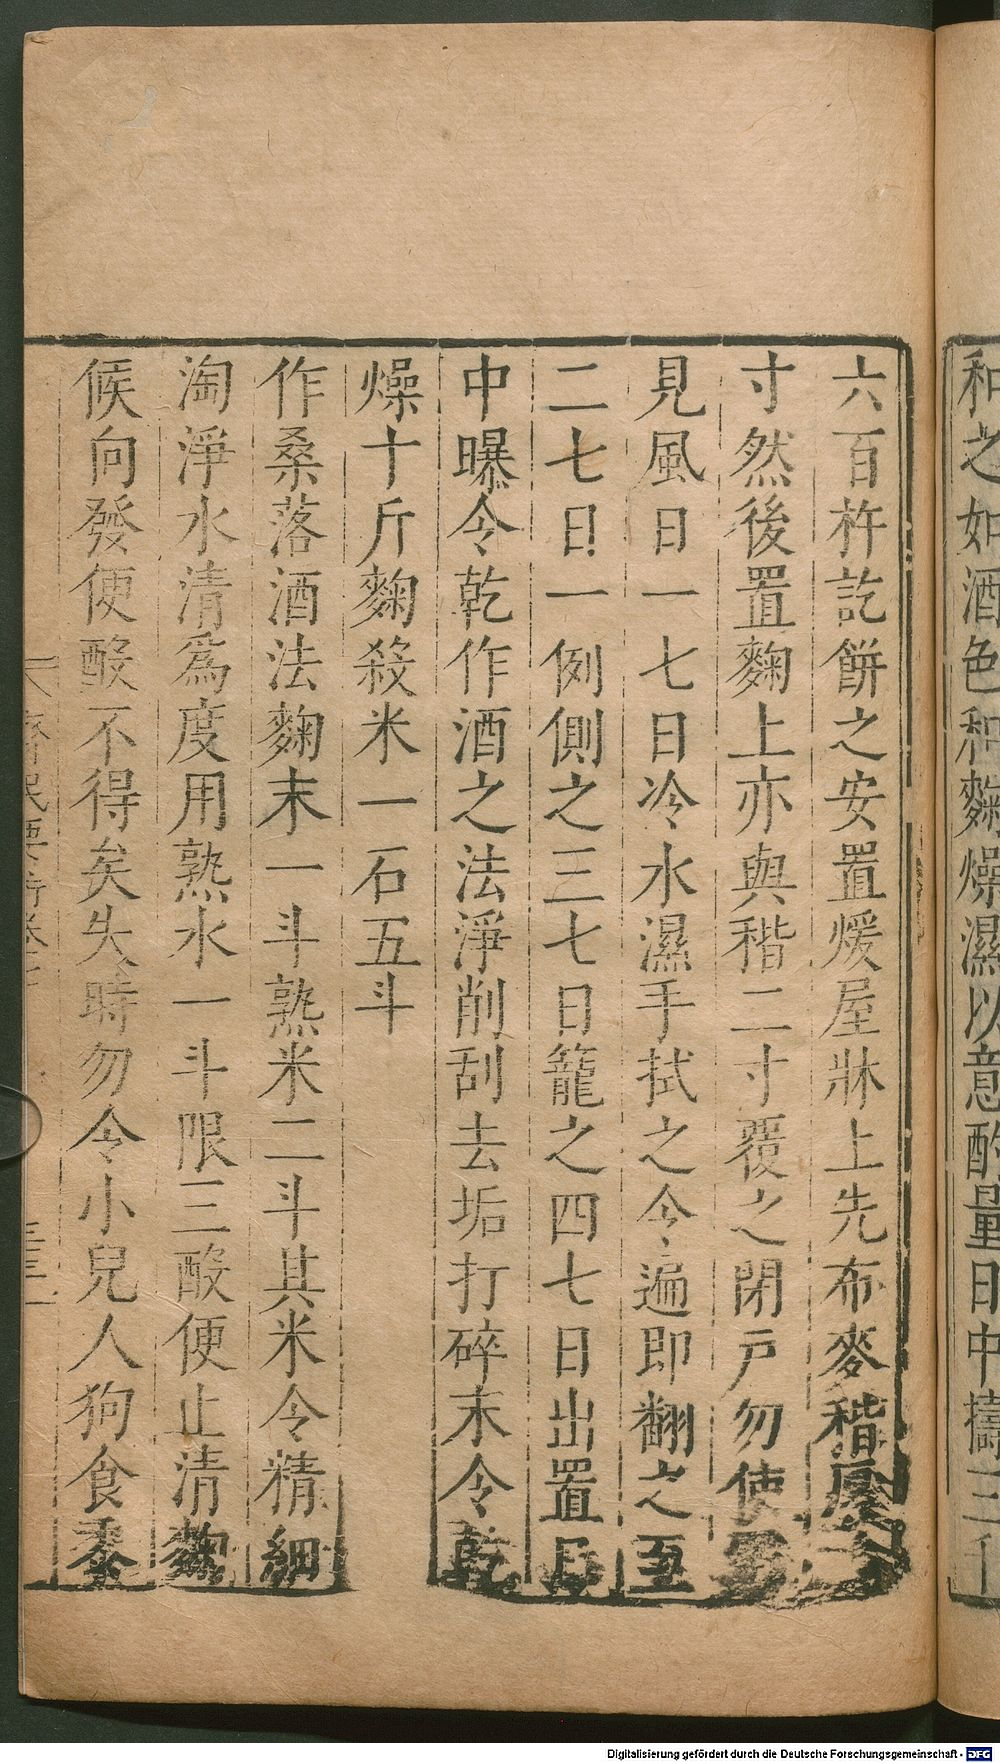 和之如酒色和麴燥濕以意酌量日中擣三千
六百杵訖餅之安置煖屋牀上先布麥䅣厚二
寸然後置麴上亦與䅣二寸覆之閉戶勿使
見風日一七日冷水濕手拭之令遍即翻之至
二七日一例側之三七日籠之四七日出置日
中曝令乾作酒之法淨削刮去垢打碎末令乾
燥十斤麴殺米一石五斗
作桑落酒法麴末一斗熟米二斗其米令精細
淘淨水清爲度用熟水一斗限三酘便止清麴
候向發便酘不得矣失時勿令小兒人狗食黍
齊民要術卷七
Digitalisierung gefördert durch die Deutsche Forschungsgemeinschaft - DFG